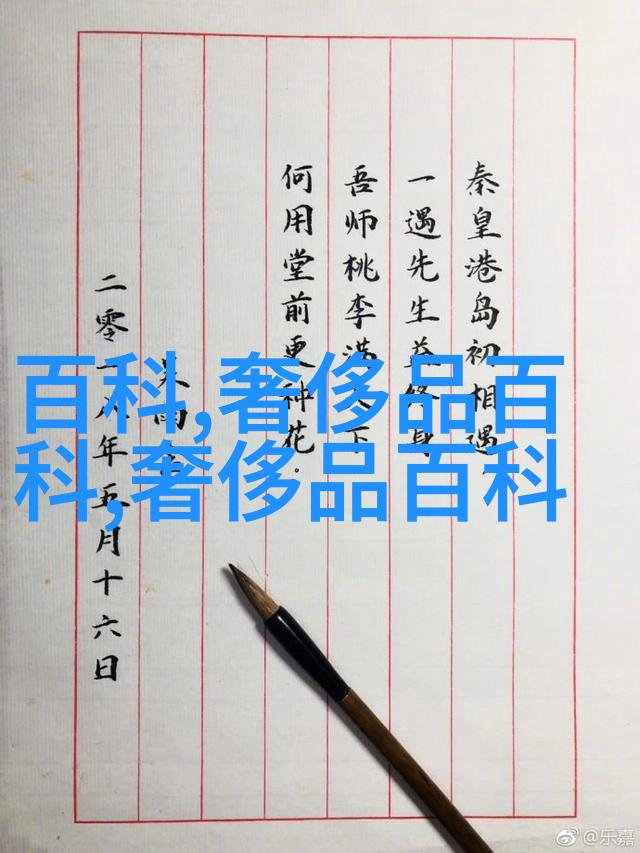 秦皇港岛初相遇
一遇先生益终身
吾师桃李满天下
何用堂前更种花。
二零一八年五月十六日
百科,奢侈品百
科,奢侈品百科
@乐嘉